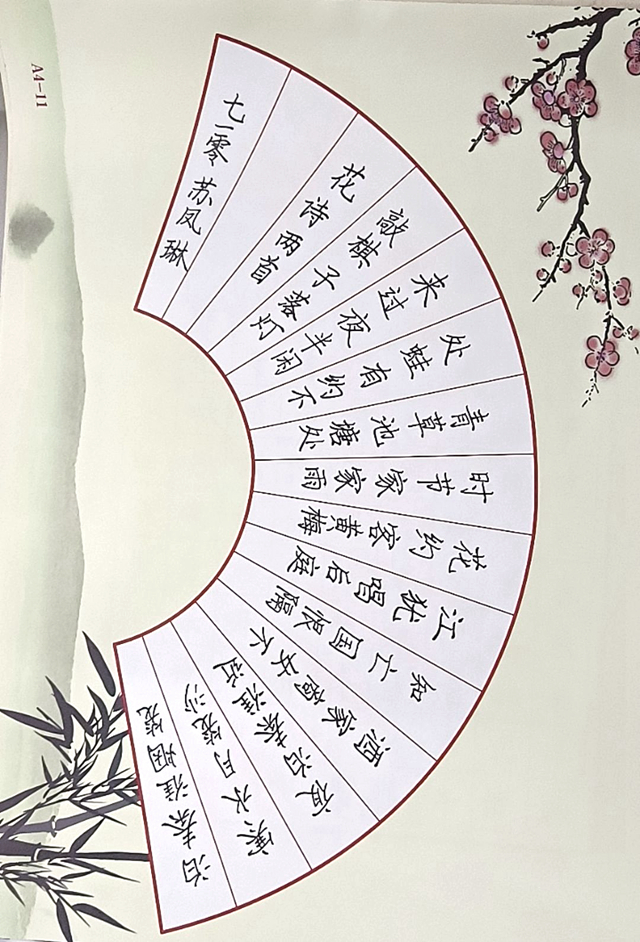 泊秦淮 烟笼
寒水月笼沙
夜泊秦淮近
酒家商女不
知亡国恨隔
江犹唱后庭
花约客黄梅
时节家家雨
青草池塘处
处蛙有约不
来过夜半闲
敲棋子落灯
花诗两首
七一零 苏凤琳
A4-11